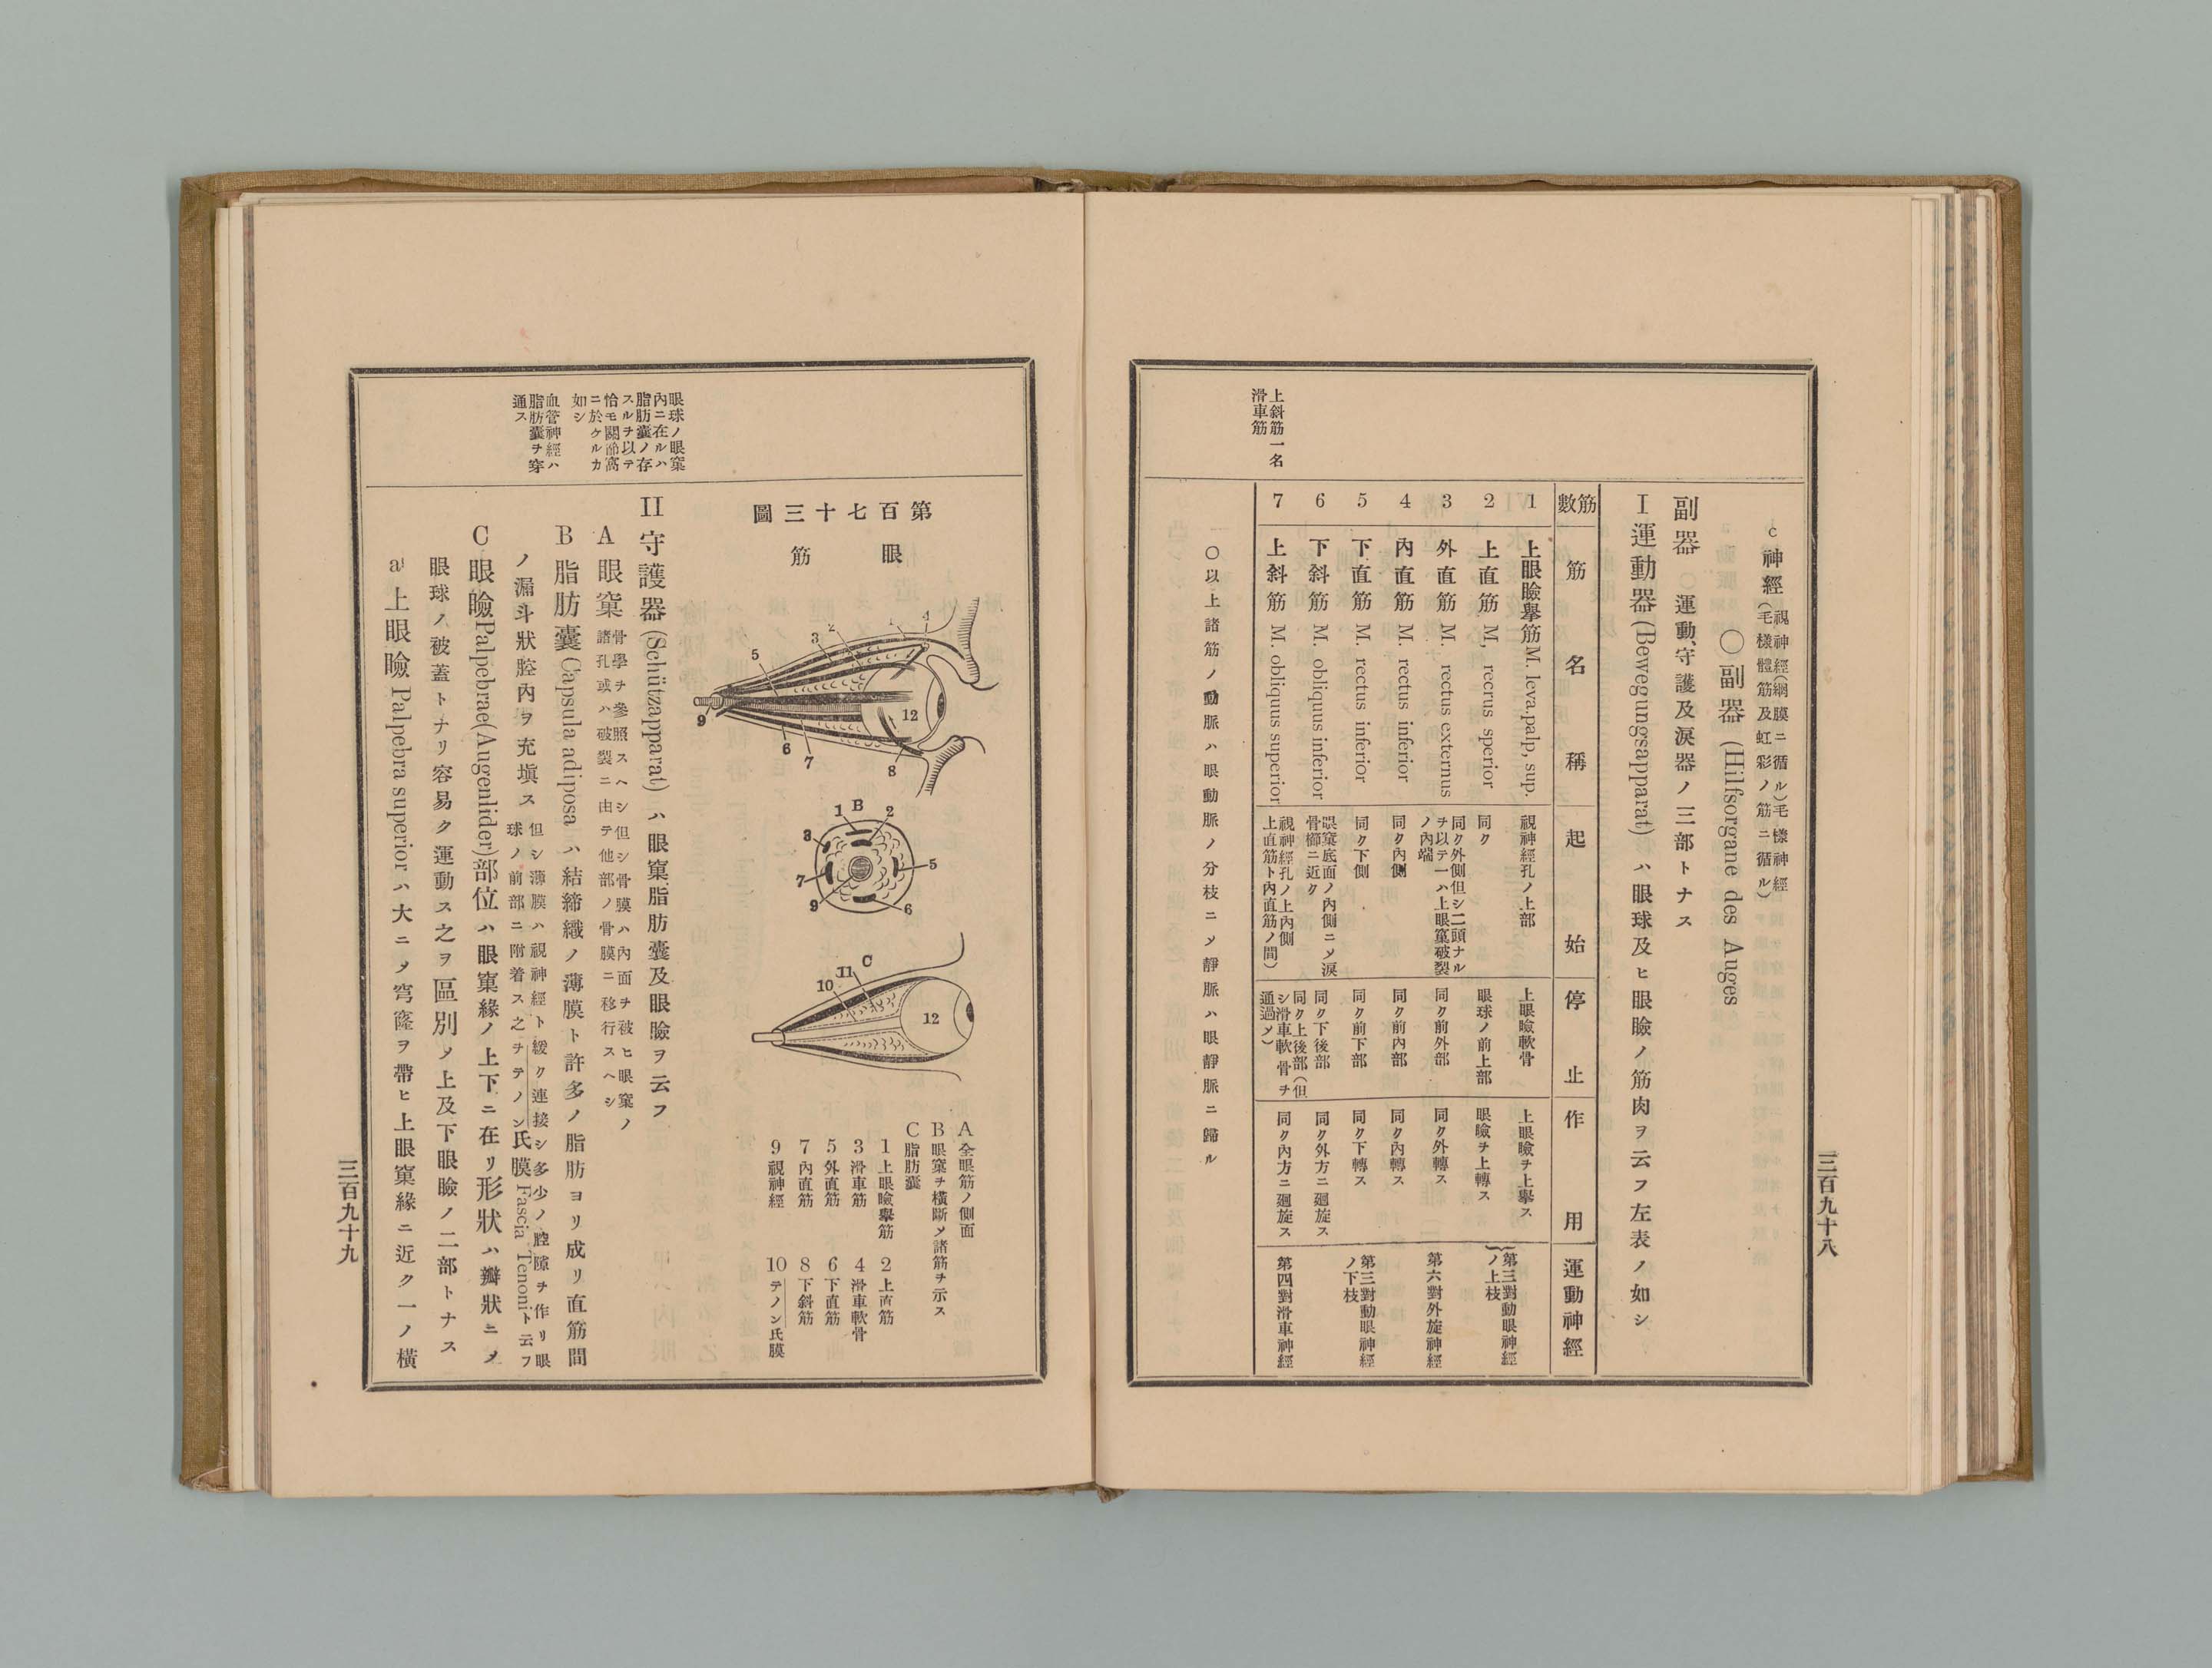 c 神經(視神經(網膜ニ循ル)毛樣神經
(毛樣體筋及虹彩ノ筋ニ循ル)
〇副器 (Hilfsorgane des Auges
副器 〇運動、守護及淚器ノ三部トナス
I 運動器(Bewegungsapparat) ハ眼球及ヒ眼瞼ノ筋肉ヲ云フ左表ノ如シ
筋數 筋名稱 起始 停止 作用 運動神經
1 上眼瞼擧筋M. leva,palp, sup. 視神經孔ノ上部 上眼瞼軟骨 上眼瞼ヲ上擧ス
2 上直筋 M, recrus sperior 同ク 眼球ノ前上部 眼瞼ヲ上轉ス
第三對動眼神經ノ上枝
3 外直筋 M. rectus externus 同ク外側但シ二頭ナルヲ以テ一ハ上眼窠破裂ノ內端 同ク前外部 同ク外轉ス 第六對外旋神經
4 內直筋 M. rectus inferior 同ク內側 同ク前內部 同ク內轉ス
5 下直筋 M. rectus inferior 同ク下側 同ク前下部 同ク下轉ス
第三對動眼神經ノ下枝
6 下斜筋 M. obliquus inferior 眼窠底面ノ內側ニシテ淚骨櫛ニ近ク 同ク下後部 同ク外方ニ廻旋ス
7 上斜筋 M. obliquus superior 視神經孔ノ上內側上直筋ト內直筋ノ間) 同ク上後部(但シ滑車軟骨ヲ通過メ) 同ク內方ニ廻旋ス 第四對滑車神經
上斜筋一名
滑車筋
〇以上諸筋ノ動脈ハ眼動脈ノ分枝ニメ靜脈ハ眼靜脈ニ歸ル
三百九十八
第百七十三圖
眼筋
1 2 3 4 5 6 7 8 9 12
B 1 2 3 5 6 7 9
C 10 11 12
A 全眼筋ノ側面
B 眼窠ヲ橫斷メ諸筋ヲ示ス
C 脂肪囊
1 上眼瞼擧筋 2 上直筋
3 滑車筋 4 滑車軟骨
5 外直筋 6 下直筋
7 內直筋 8 下斜筋
9 視神經 10 テノン氏膜
眼球ノ眼窠
內ニ在ルハ
脂肪囊ノ存
スルヲ以テ
恰モ關節窩
ニ於ケルカ
如シ
血管神經ハ
脂肪囊ヲ穿
通ス
II 守護器(Schützapparat) ハ眼窠脂肪囊及眼瞼ヲ云フ
A 眼窠 骨學ヲ參照スヘシ但シ骨膜ハ內面ヲ被ヒ眼窠ノ
諸孔或ハ破裂ニ由テ他部ノ骨膜ニ移行スヘシ
B 脂肪囊 Capsula adiposa ハ結締織ノ薄膜ト許多ノ脂肪ヨリ成リ直筋間
ノ漏斗狀腔內ヲ充塡ス 但シ薄膜ハ視神經ト緩ク連接シ多少ノ腔隙ヲ作リ眼
球ノ前部ニ附着ス之ヲテノン氏膜 Fascia Tenoniト云フ
C 眼瞼Palpebrae(Augenlider)部位ハ眼窠緣ノ上下ニ在リ形狀ハ瓣狀ニメ
眼球ノ被蓋トナリ容易ク運動ス之ヲ區別メ上及下眼瞼ノ二部トナス
a 上眼瞼 Palpebra superior ハ大ニメ穹窿ヲ帶ヒ上眼窠緣ニ近ク一ノ橫
三百九十九